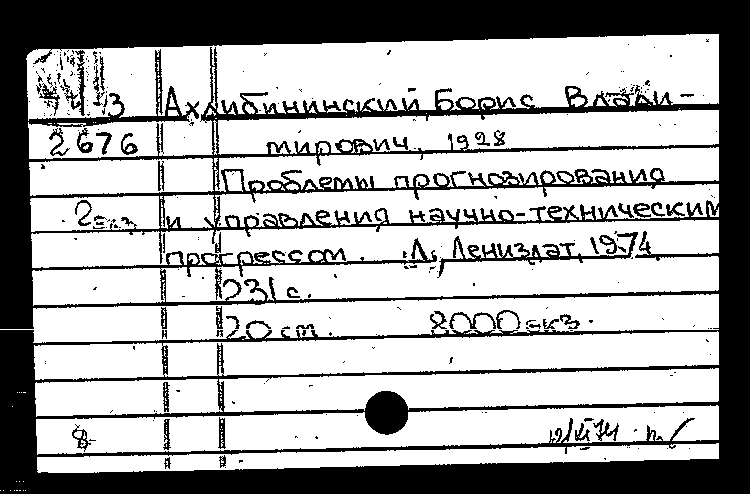 74-3 Ахлибининский, Борис Влади-
2676 мирович, 1928
Проблемы прогнозирования
2экз. и управления научно-техническим
прогрессом. Л., Лениздат, 1974.
231 с.
20 см. 8000 экз.
8